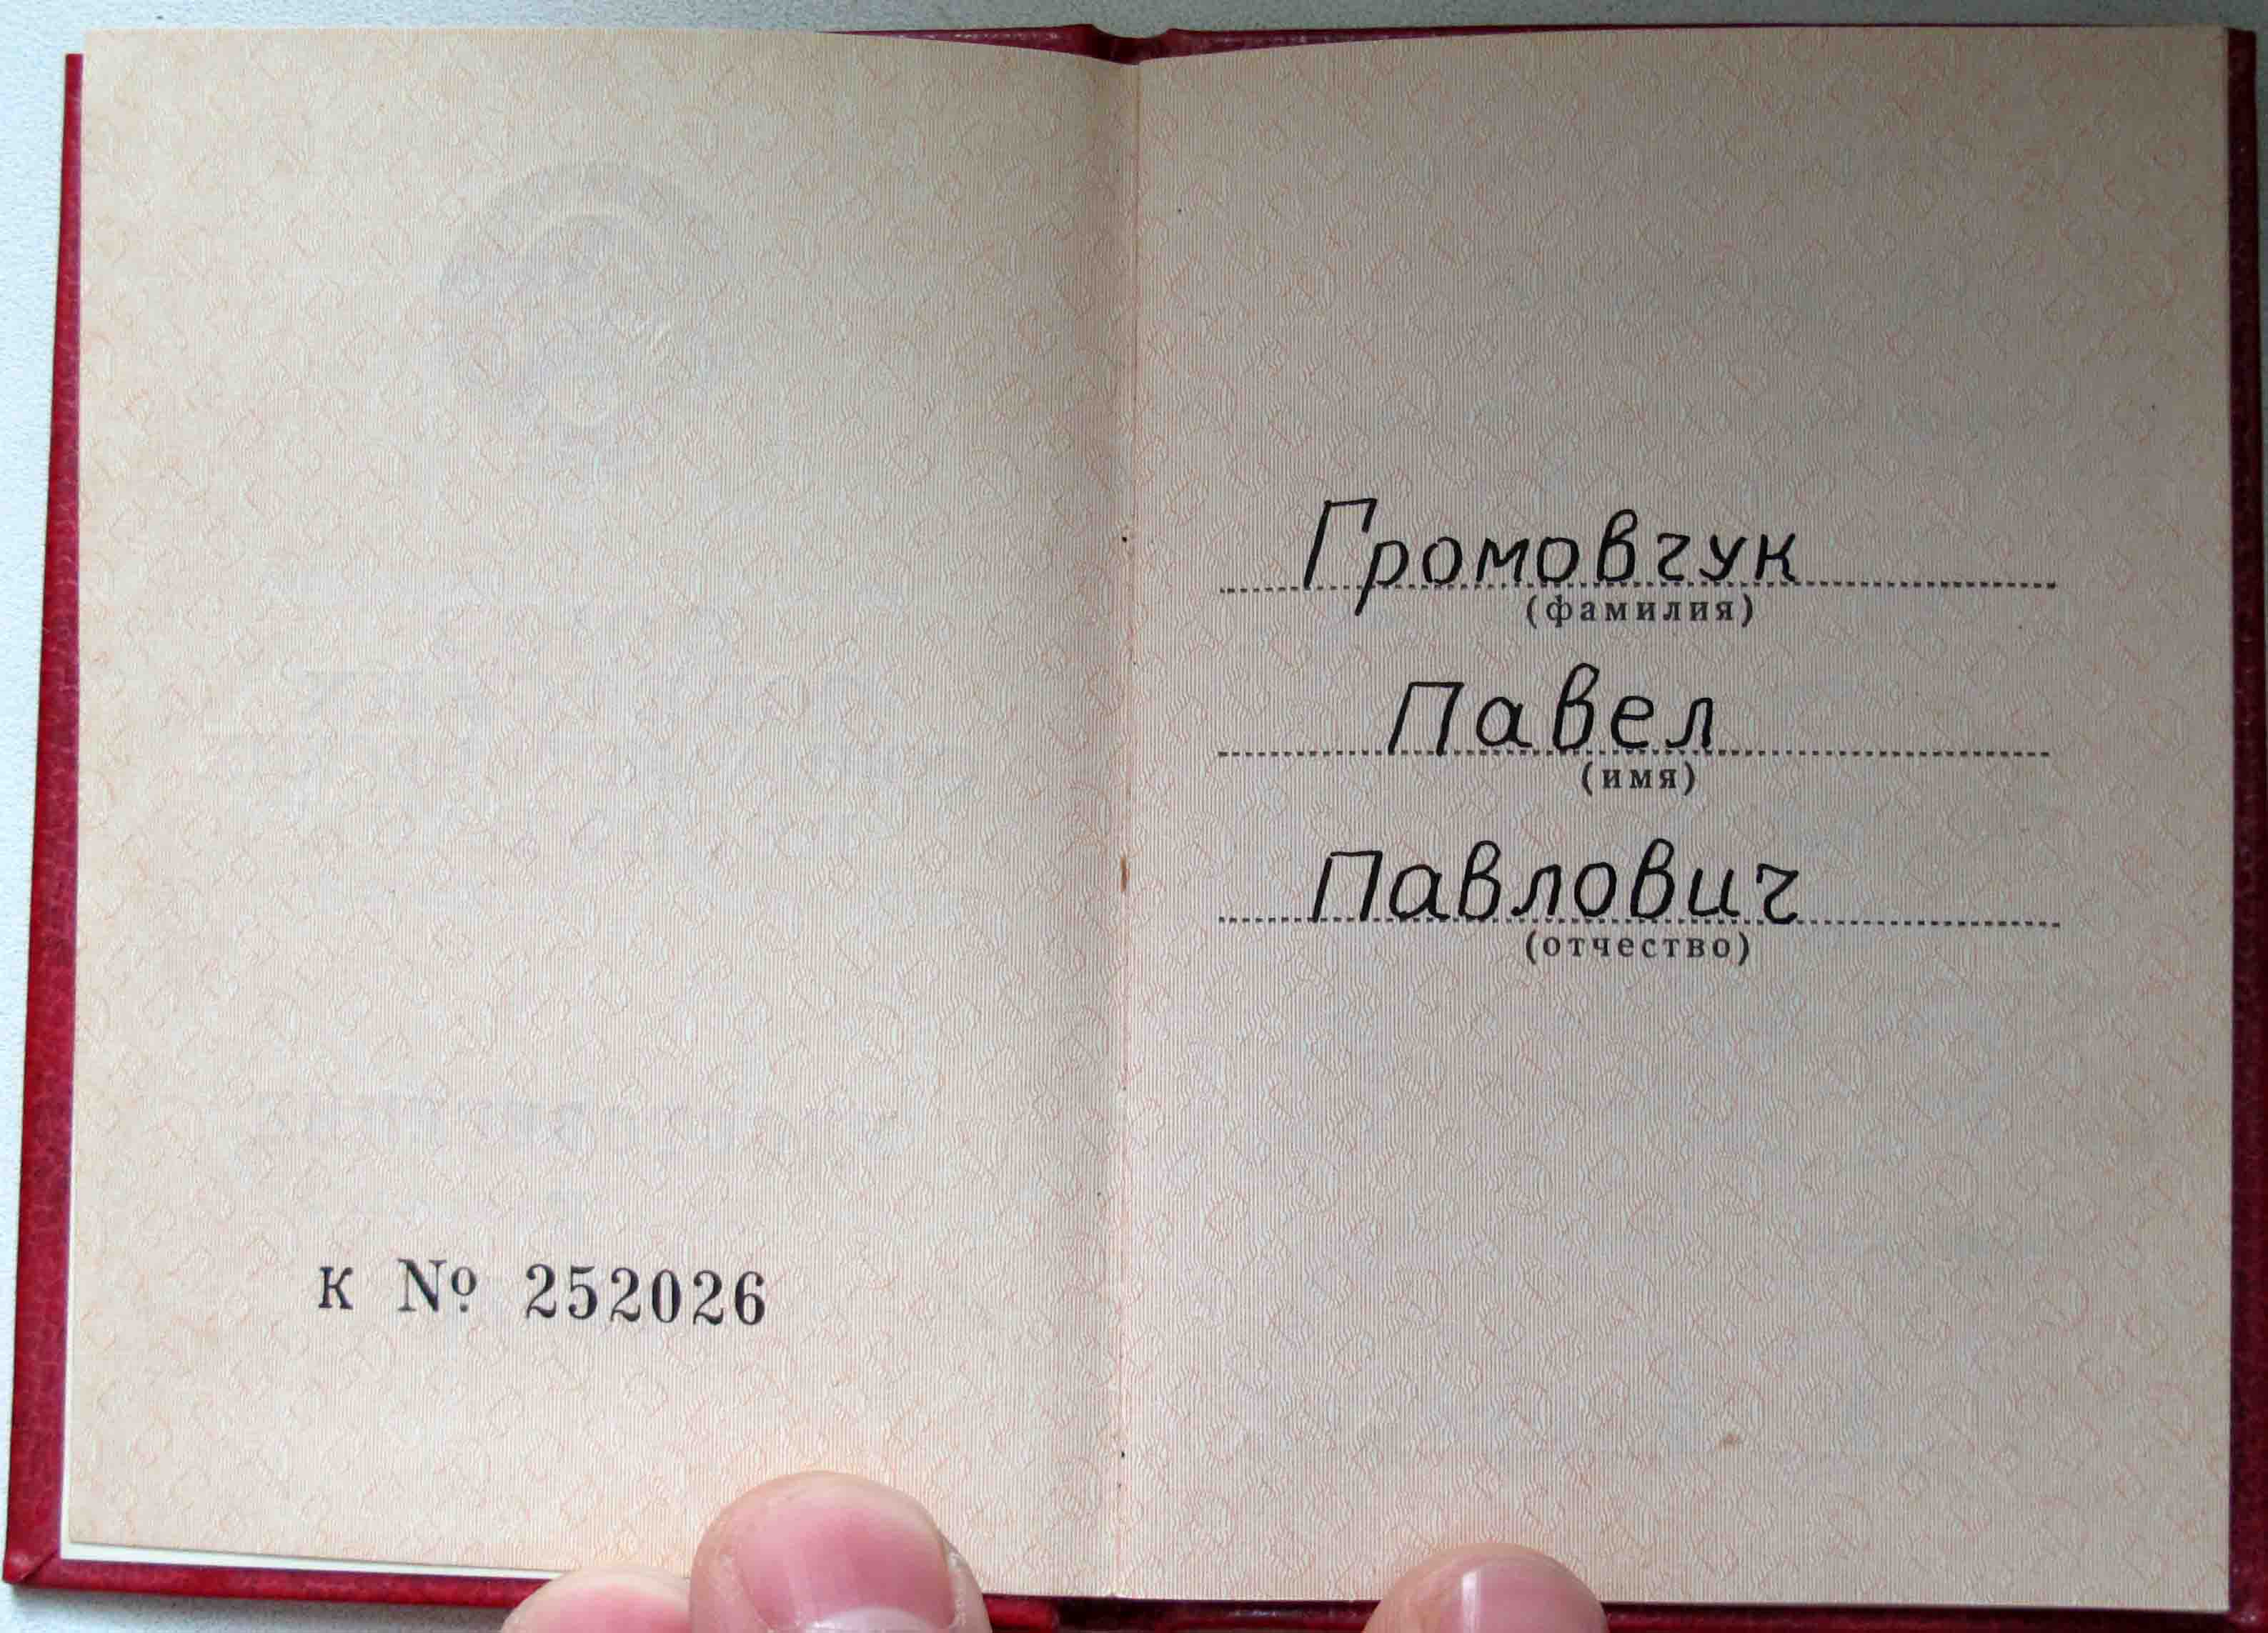 к № 252026
Громовчук
(фамилия)
Павел
(имя)
Павлович
(отчество)